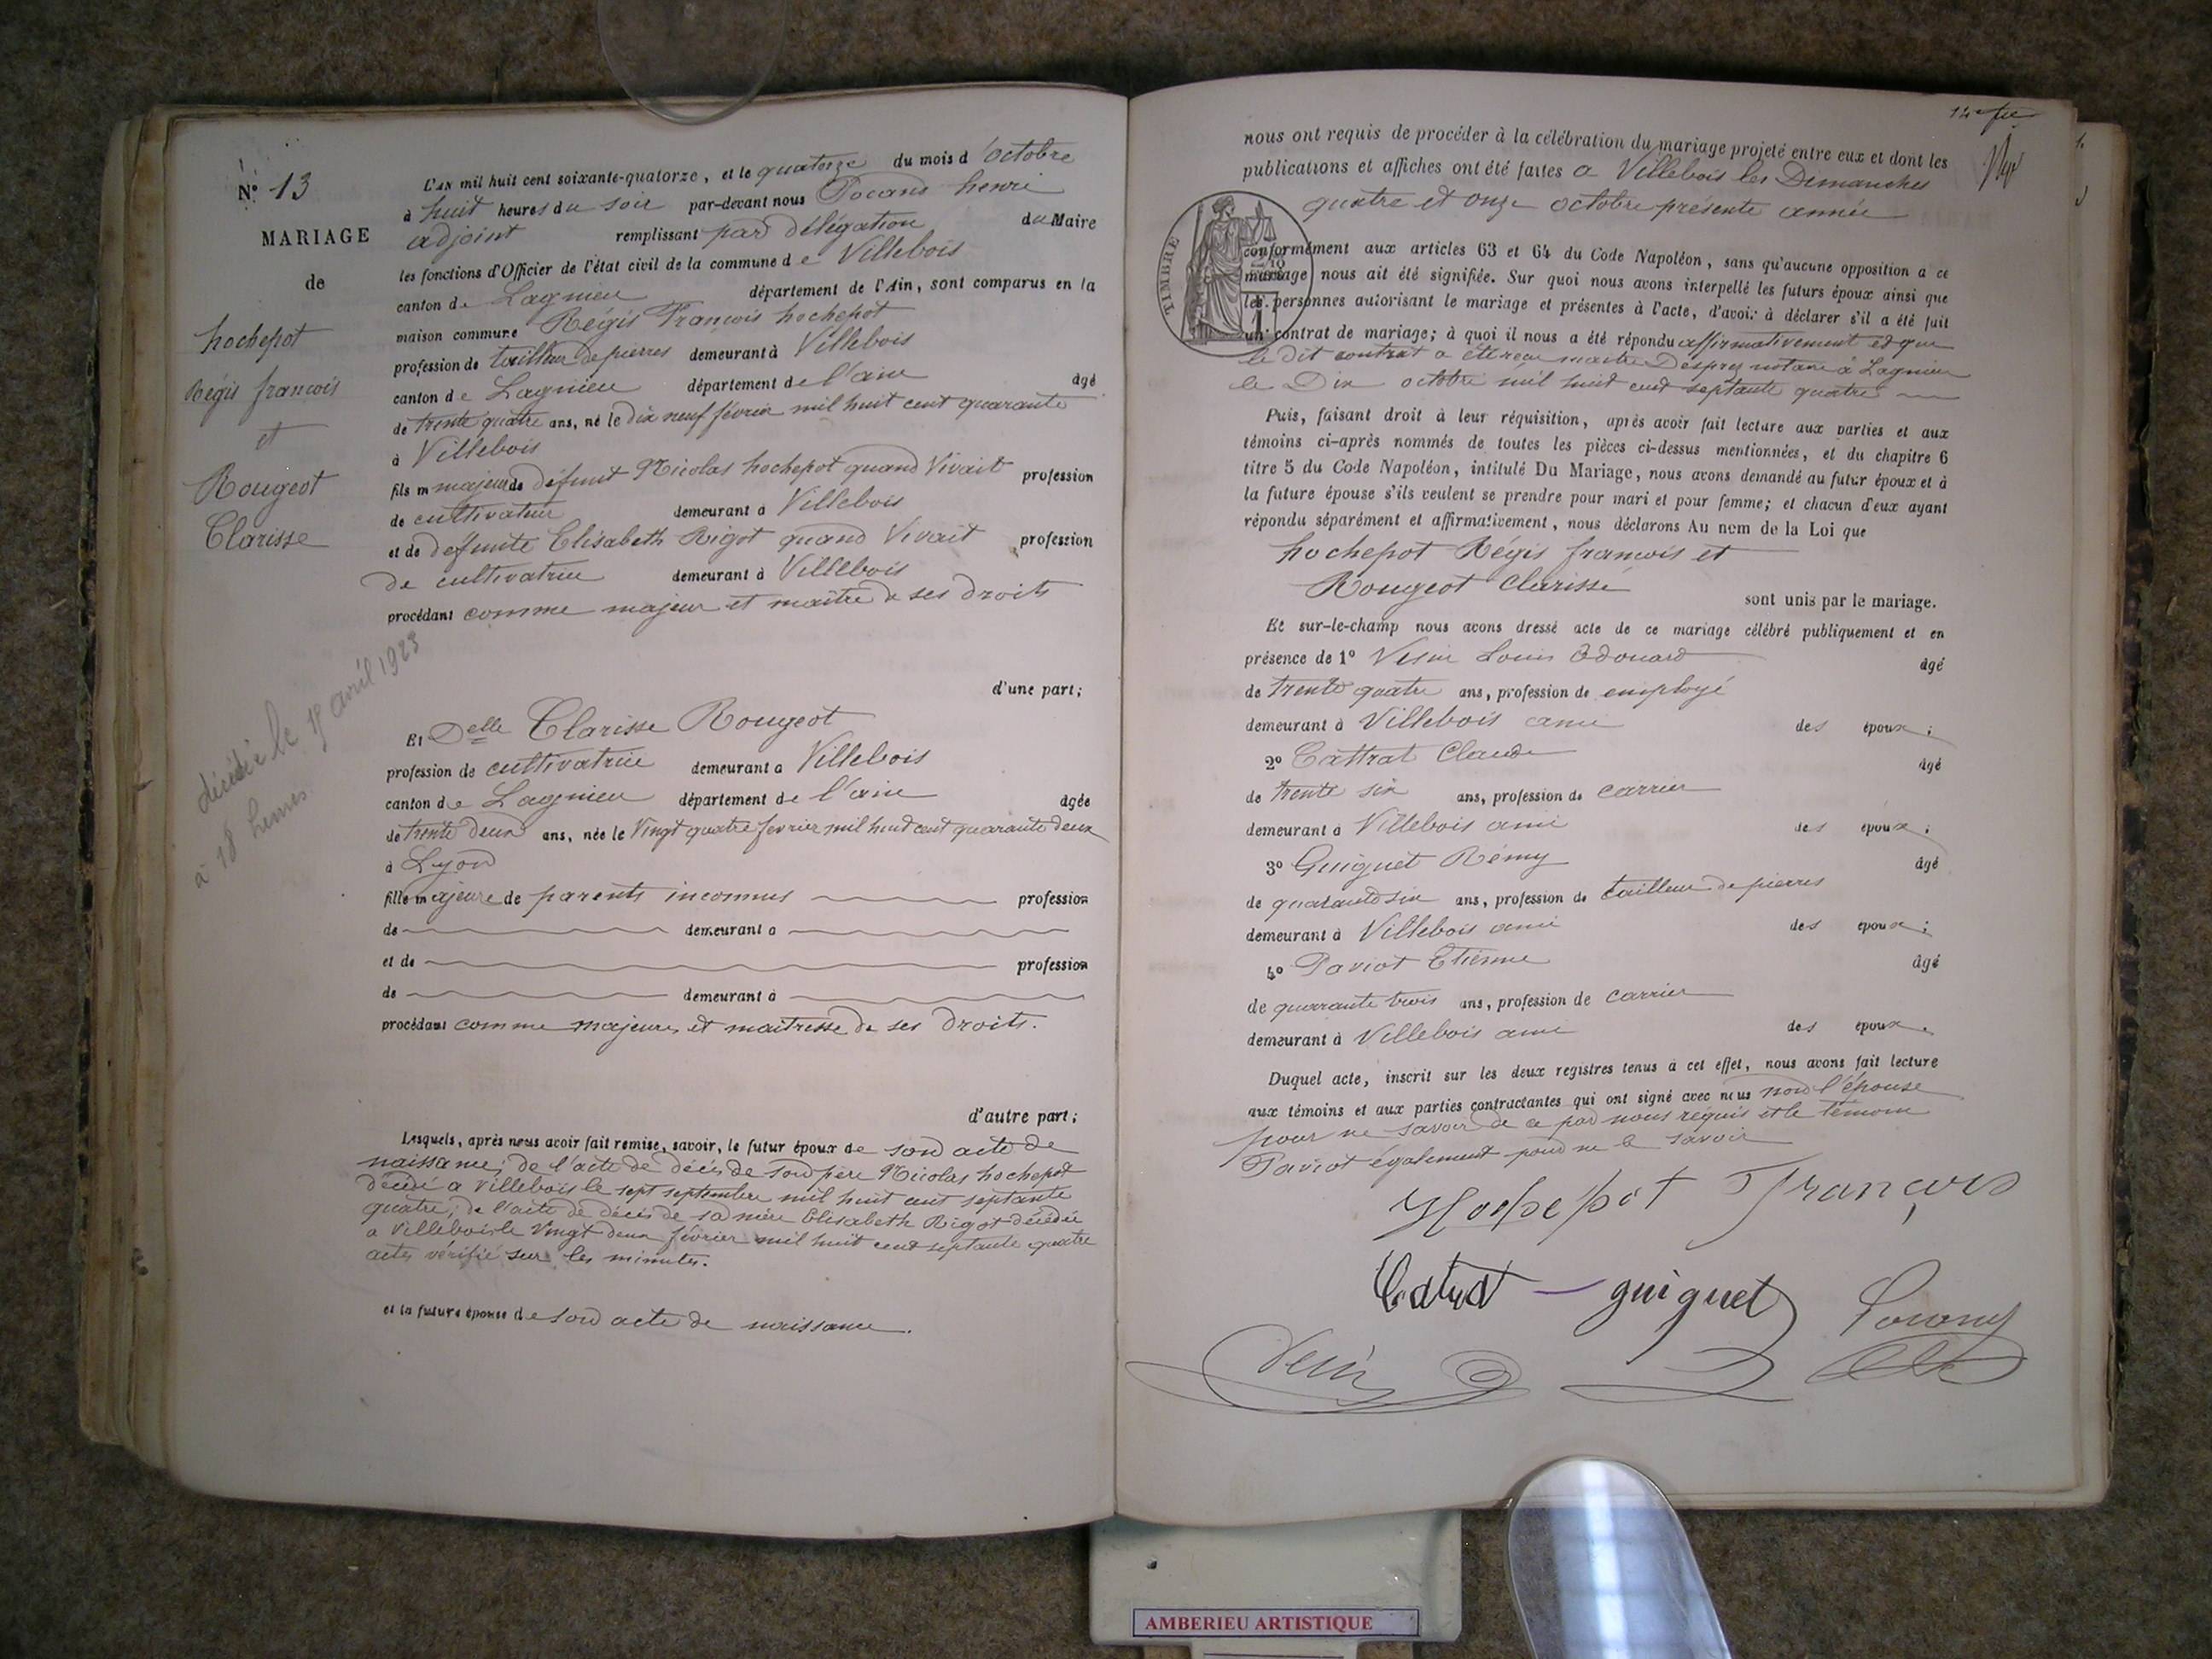 N.° 13
MARIAGE
de
hochepot
Régis francois
et
Rougeot
Clarisse
décédée le 18 avril 1923
à 18 heures.
L'AN mil huit cent soixante-quatorze, et le quatorze du mois d'octobre
à huit heures du soir par-devant nous Pocard henri
adjoint remplissant par délégation du Maire
les fonctions d'Officier de l'état civil de la commune de Villebois
canton de Lagnieu département de l'Ain, sont comparus en la
maison commune Régis Francois hochepot
profession de tailleur de pierres demeurant à Villebois
canton de Lagnieu département de l'ain âgé
de trente quatre ans, né le dix neuf février mil huit cent quarante
à Villebois
fils majeur de défunt Nicolas hochepot quand Vivait profession
de cultivateur demeurant à Villebois
et de defunte Elisabeth Rigot quand Vivait profession
de cultivatrice demeurant à Villebois
procédant comme majeur et maître de ses droits
d'une part;
Et Delle Clarisse Rougeot
profession de cultivatrice demeurant à Villebois
canton de Lagnieu département de l'ain âgée
de trente deux ans, née le Vingt quatre fevrier mil huit cent quarante deux
à Lyon
fille majeure de parents inconnus profession
de demeurant à
et de profession
de demeurant à
procédant comme majeure et maitresse de ses droits.
d'autre part;
Lesquels, après nous avoir fait remise, savoir, le futur époux de son acte de
naissance; de l'acte de décès de son père Nicolas hochepot
décédé a Villebois le sept septembre mil huit cent septante
quatre; de l'acte de décès de sa mère Elisabeth Rigot décédée
a Villebois le Vingt deux février mil huit cent septante quatre
actes vérifié sur les minutes.
et la future épouse de son acte de naissance.
nous ont requis de procéder à la célébration du mariage projeté entre eux et dont les
publications et affiches ont été faites a Villebois les Dimanches
quatre et onze octobre présente année
TIMBRE
conformément aux articles 63 et 64 du Code Napoléon, sans qu'aucune opposition a ce
mariage nous ait été signifiée. Sur quoi nous avons interpellé les futurs époux ainsi que
les personnes autorisant le mariage et présentes à l'acte, d'avoir à déclarer s'il a été fait
un contrat de mariage; à quoi il nous a été répondu affirmativement et que
le dit contrat a été reçu maitre Desprez notaire à Lagnieu
le Dix octobre mil huit cent septante quatre
Puis, faisant droit à leur réquisition, après avoir fait lecture aux parties et aux
témoins ci-après nommés de toutes les pièces ci-dessus mentionnées, et du chapitre 6
titre 5 du Code Napoléon, intitulé Du Mariage, nous avons demandé au futur époux et à
la future épouse s'ils veulent se prendre pour mari et pour femme; et chacun d'eux ayant
répondu séparément et affirmativement, nous déclarons Au nom de la Loi que
hochepot Régis francois et
Rougeot Clarisse
sont unis par le mariage.
Et sur-le-champ nous avons dressé acte de ce mariage célébré publiquement et en
présence de 1° Vesin Louis Edouard âgé
de trente quatre ans, profession de employé
demeurant à Villebois ami des époux;
2° Cattrat Claude âgé
de trente six ans, profession de carrier
demeurant à Villebois ami des époux;
3° Guiguet Rémy âgé
de quarante six ans, profession de tailleur de pierres
demeurant à Villebois ami des époux;
4° Paviot Etienne âgé
de quarante trois ans, profession de carrier
demeurant à Villebois ami des époux.
Duquel acte, inscrit sur les deux registres tenus à cet effet, nous avons fait lecture
aux témoins et aux parties contractantes qui ont signé avec nous non l'épouse
pour ne savoir de ce par nous requis et le témoin
Paviot également pour ne le savoir
Hochepot François
Catrat guiguet
Vesin
AMBERIEU ARTISTIQUE